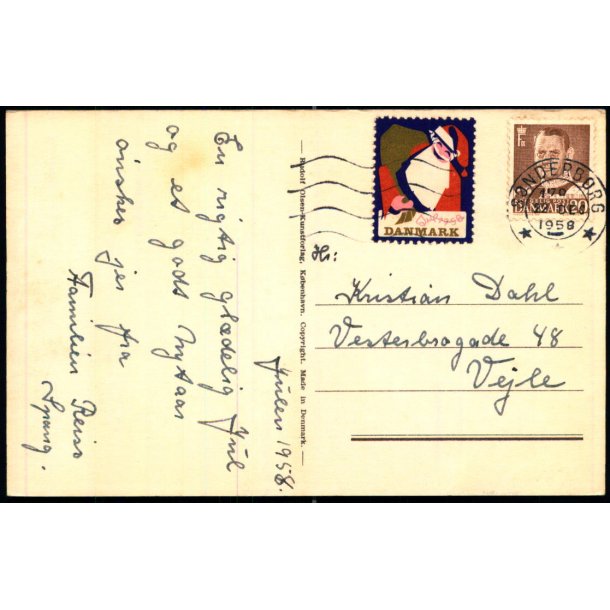 Julen 1958.
En rigtig glædelig Jul
og et godt nytaar
ønskes jer fra
Familien Reiss
Spang.
— Rudolf Olsen-Kunstforlag. København. Copyright. Made in Denmark. —
DANMARK
SØNDERBORG
22 DEC
1958
Hr:
Kristian Dahl
Vesterbrogade 48
Vejle